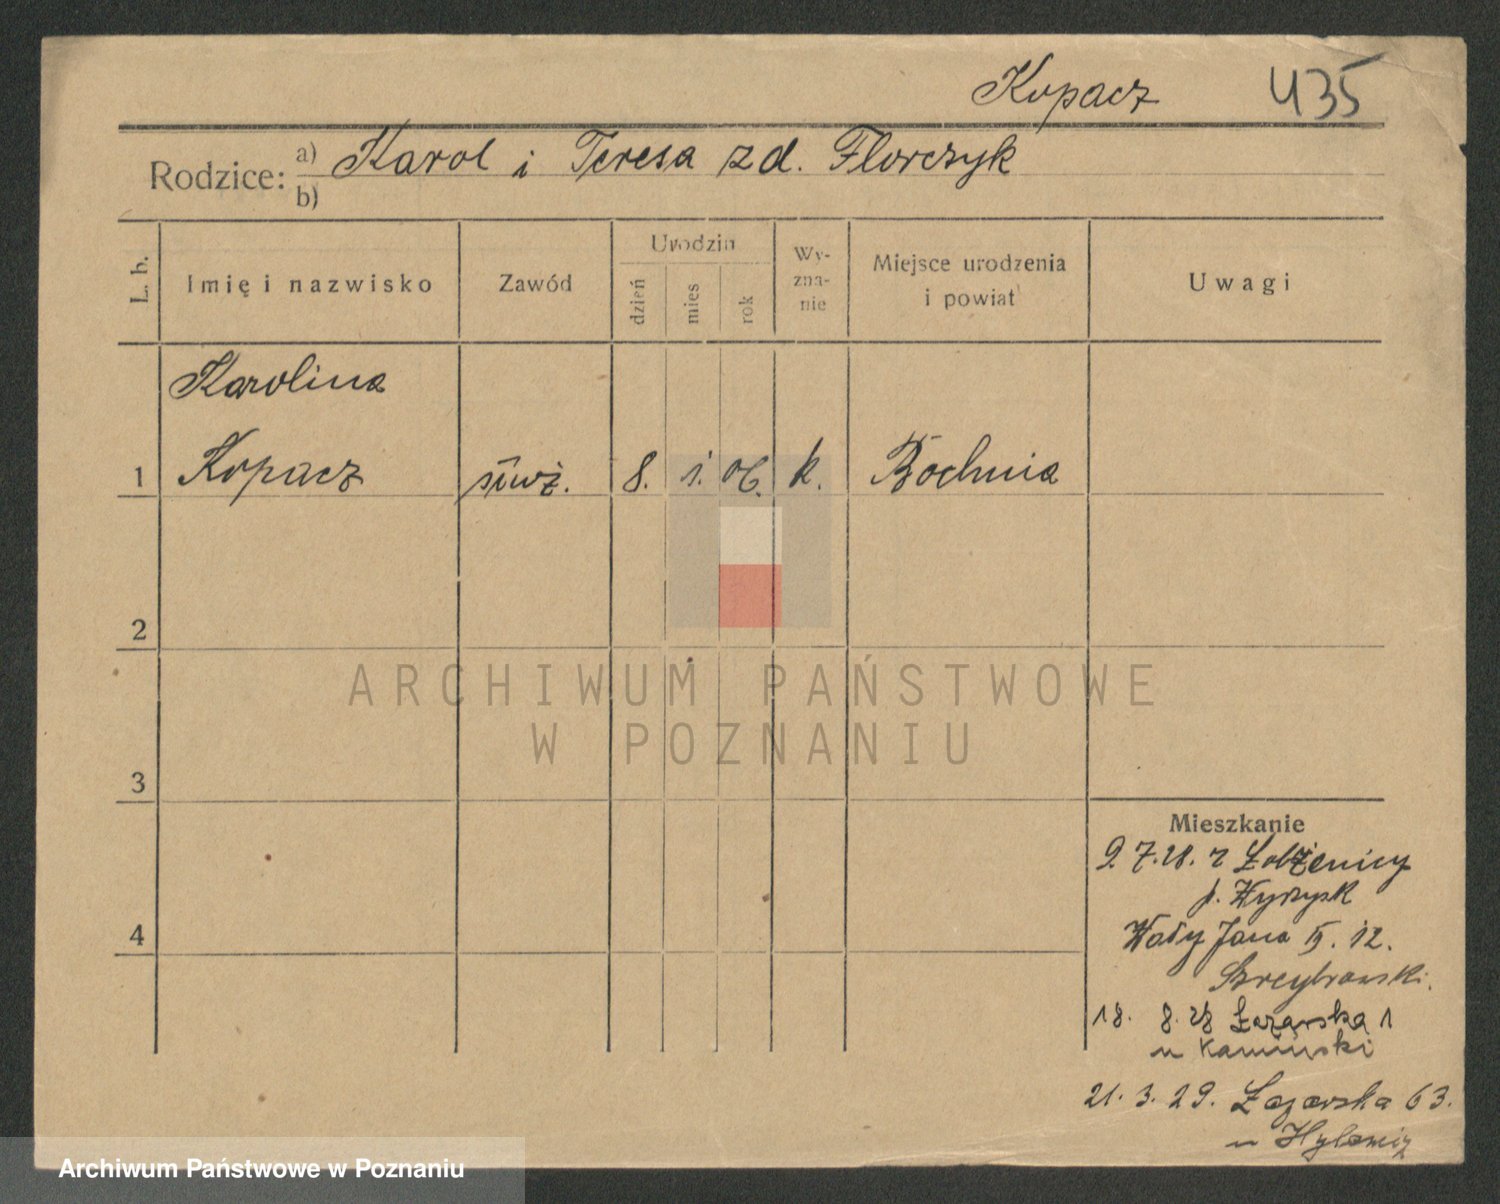 Kopacz 435
Rodzice: a) Karol i Teresa zd. Florczyk
b)
L. b.
Imię i nazwisko
Zawód
Urodzin
dzień
mies
rok
Wy-
zna-
nie
Miejsce urodzenia
i powiat
Uwagi
Karolina
1 Kopacz służ. 8. 1. 06. k. Bochnia
2
ARCHIWUM PAŃSTWOWE
W POZNANIU
3
Mieszkanie
9. 7. 28. z Łobżenicy
p. Wyrzysk
4
Wały Jana III. 12.
18. 8. 28 Łazarska 1
u Kamiński
21. 3. 29. Łazarska 63.
u
Archiwum Państwowe w Poznaniu